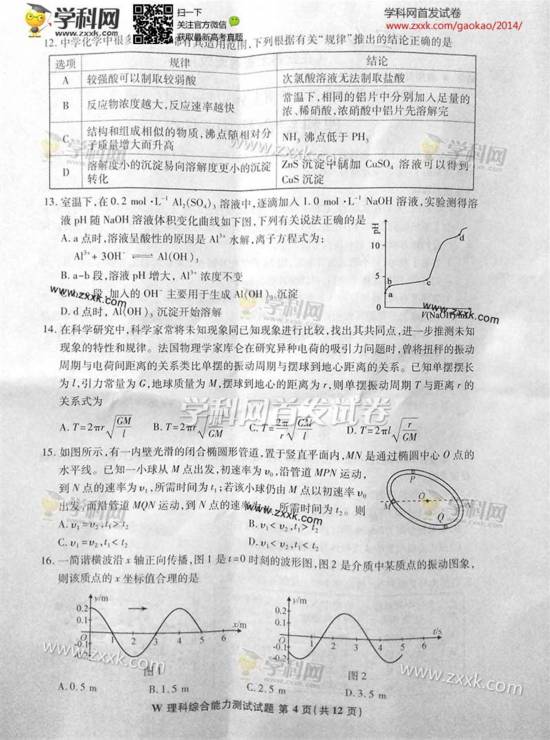 学科网
www.zxxk.com
扫一扫
关注官方微信
获取最新高考真题
学科网首发试卷
www.zxxk.com/gaokao/2014/
12. 中学化学中很多 其适用范围,下列根据有关“规律”推出的结论正确的是
选项 规律 结论
A 较强酸可以制取较弱酸 次氯酸溶液无法制取盐酸
B 反应物浓度越大,反应速率越快 常温下,相同的铝片中分别加入足量的浓、稀硝酸,浓硝酸中铝片先溶解完
C 结构和组成相似的物质,沸点随相对分子质量增大而升高 NH₃ 沸点低于 PH₃
D 溶解度小的沉淀易向溶解度更小的沉淀转化 ZnS 沉淀中滴加 CuSO₄ 溶液可以得到 CuS 沉淀
13. 室温下,在 0.2 mol·L⁻¹ Al₂(SO₄)₃ 溶液中,逐滴加入 1.0 mol·L⁻¹ NaOH 溶液,实验测得溶
液 pH 随 NaOH 溶液体积变化曲线如下图,下列有关说法正确的是
A. a 点时,溶液呈酸性的原因是 Al³⁺ 水解,离子方程式为:
Al³⁺ + 3OH⁻ ⇌ Al(OH)₃
B. a-b 段,溶液 pH 增大, Al³⁺ 浓度不变
段,加入的 OH⁻ 主要用于生成 Al(OH)₃ 沉淀
D. d 点时, Al(OH)₃ 沉淀开始溶解
pH
10
5
0
a
b
c
d
V(NaOH)/mL
14. 在科学研究中,科学家常将未知现象同已知现象进行比较,找出其共同点,进一步推测未知
现象的特性和规律。法国物理学家库仑在研究异种电荷的吸引力问题时,曾将扭秤的振动
周期与电荷间距离的关系类比单摆的振动周期与摆球到地心距离的关系。已知单摆摆长
为 l,引力常量为 G,地球质量为 M,摆球到地心的距离为 r,则单摆振动周期 T 与距离 r 的
关系式为
A. T=2πr√(GM/l) B. T=2πr√(l/GM) C. T=(2π/r)√(GM/l) D. T=2πl√(r/GM)
学科网首发试卷
15. 如图所示,有一内壁光滑的闭合椭圆形管道,置于竖直平面内,MN 是通过椭圆中心 O 点的
水平线。已知一小球从 M 点出发,初速率为 v₀,沿管道 MPN 运动,
到 N 点的速率为 v₁,所需时间为 t₁;若该小球仍由 M 点以初速率 v₀
出发,而沿管道 MQN 运动,到 N 点的速率 所需时间为 t₂。则
A. v₁=v₂,t₁>t₂ B. v₁<v₂,t₁>t₂
C. v₁=v₂,t₁<t₂ D. v₁<v₂,t₁<t₂
P
M
O
Q
16. 一简谐横波沿 x 轴正向传播,图 1 是 t=0 时刻的波形图,图 2 是介质中某质点的振动图象,
则该质点的 x 坐标值合理的是
y/m
0.2
0.1
O
-0.1
-0.2
1 2 3 4 5 6
x/m
图 1
y/m
0.2
0.1
O
-0.1
-0.2
1 2 3 4 5 6
t/s
图 2
A. 0.5 m B. 1.5 m C. 2.5 m D. 3.5 m
W 理科综合能力测试试题 第 4 页(共 12 页)